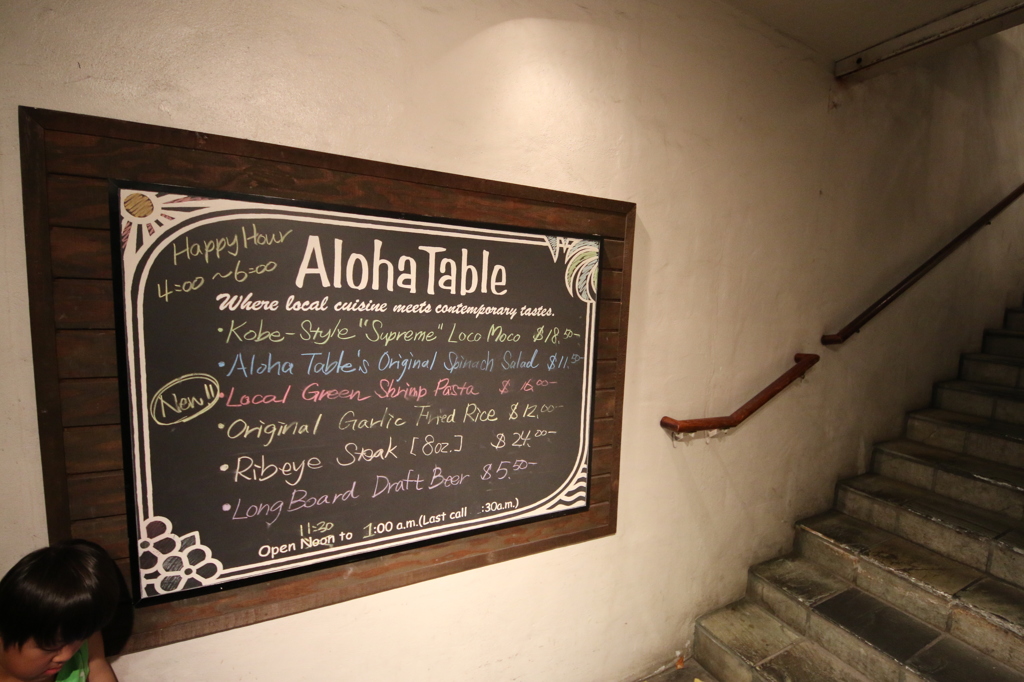 Happy Hour
4:00 ~ 6:00
Aloha Table
Where local cuisine meets contemporary tastes.
• Kobe-Style "Supreme" Loco Moco $18.50-
• Aloha Table's Original Spinach Salad $11.50-
New!! • Local Green Shrimp Pasta $16.00-
• Original Garlic Fried Rice $12.00-
• Ribeye Steak [8oz.] $24.00-
• Long Board Draft Beer $5.50-
11:30
Open Noon to 1:00 a.m.(Last call :30a.m.)